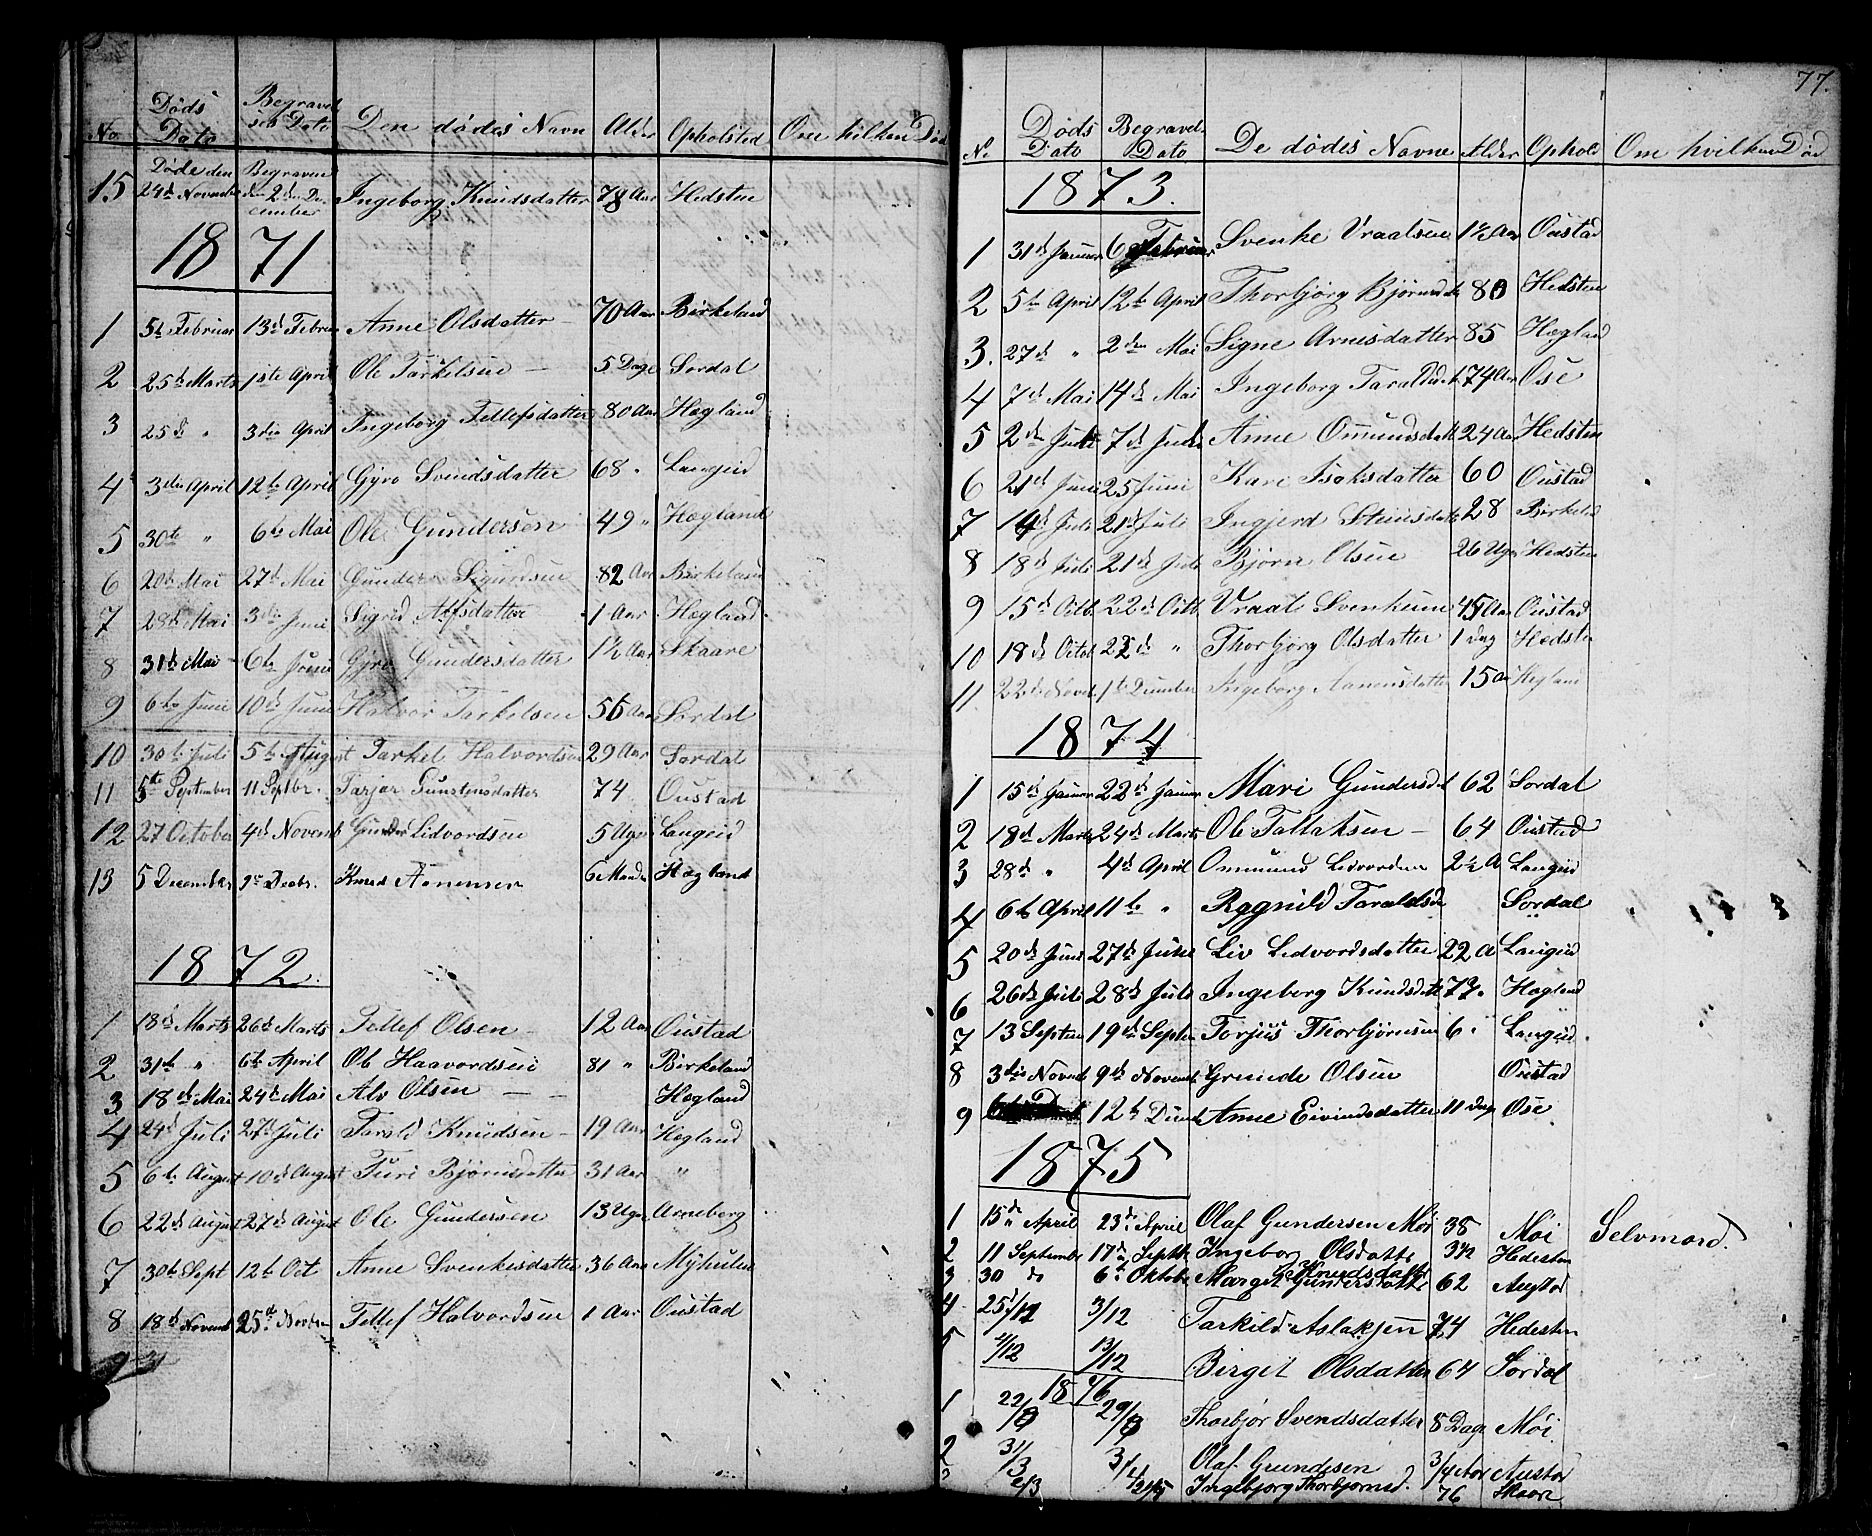 No Døds Dato Begravel ses Dato Den dødes Navn Alder Opholsted Om hvilken Død
Døde den Begraven
15 24de November den 2den December Ingeborg Knudsdatter 78 Aar Hedsten
1871
1 5te Februar 13de Februar Anne Olsdatter 70 Aar Birkeland
2 25de Marts 1ste April Ole Tarkelsen 5 Dage Sordal
3 25de " 3die April Ingeborg Tellefsdatter 80 Aar Hægland
4 3die April 12te April Gyro Svendsdatter 68 " Langeid
5 30te " 6te Mai Ole Gundersen 49 " Hægland
6 20de Mai 27de Mai Gunder Sigurdsen 82 Aar Birkeland
7 28de Mai 3die Juni Sigrid Alfsdatter 1 Aar Hægland
8 31te Mai 6te Juni Gyro Gundersdatter 1½ Aar Skaare
9 6te Juni 10de Juni Halvor Tarkelsen 56 Aar Sordal
10 30te Juli 5te August Tarkel Halvordsen 29 Aar Sordal
11 5te September 11 Septbr. Tarjer Gunstensdatter 74 Oustad
12 27 October 4de Novemb Gunder Lidvordsen 5 Uger Langeid
13 5 December 9de Decbr. Knud Aanensen 6 Maaneder Hægland
1872.
1 18de Marts 26de Marts Tellef Olsen 12 Aar Oustad
2 31te " 6te April Ole Haavordsen 81 " Birkeland
3 18de Mai 24de Mai Alv Olsen Hægland
4 24de Juli 27de Juli Tarald Knudsen 19 Aar Hægland
5 6te August 10de August Turi Bjørnsdatter 31 Aar "
6 22de August 27de August Ole Gundersen 13 Uger Aaneberg
7 30te Sept 12te Oct Anne Svenkesdatter 36 Aar Myhulen
8 18de Novemb 25de Novbr Tellef Halvordsen 1 Aar Oustad
77.
No Døds Dato Begravel. Dato De dødes Navne Alder Ophold Om hvilken Død
1873.
1 31de Januar 6 Februar Svenke Vraalsen 1½ Aar Oustad
2 5te April 12te April Thorbjørg Bjørnsdtr 80 Hedsten
3. 27de " 2den Mai Signe Arnesdatter 85 Hægland
4 7de Mai 14de Mai Ingeborg Taraldsd. 74 Aar Ose
5 2den Juni 7de Juni Anne Omundsdatt 24 Aar Hedsten
6 21de Juni 25 Juni Kari Isaksdatter 60 Oustad
7 14de Juli 21de Juli Ingjerd Steensdatr 28 Birkelad
8 18de Juli 21de Juli Bjørn Olsen 26 Uger Hedsten
9 15de Octb. 22de Octb. Vraal Svenkesen 45 Aar Oustad
10 18de Octob 22de " Thorbjørg Olsdatter 1 Dag Hedsten
11. 22de Novbr. 1te December Ingeborg Aanensdatter 15 Aar Hegland
1874
1 15de Januar 22de Januar Mari Gundersdat 62 Sordal
2 18de Marts 24de Marts Ole Tallaksen 64 Oustad
3 28de " 4de April Ommund Lidvordsen 2½ A Langeid
4 6te April 11te " Ragnild Taraldsd Sordal
5 20de Juni 27de Juni Liv Lidvordsdatter 22 A Langeid
6 26de Juli 28de Juli Ingeborg Knudsdatt 77 " Hægland
7 13 Septem 19de Septem Torjus Thorbjørnsen 6 " Langeid.
8 3die Novemb 9de Novemb Grunde Olsen Oustad
9 12te Decemb Anne Eivindsdatter 11 Dage Ose
1875
1 15de April 23de April Olaf Gundersen Moi 38 Moi Selvmord.
2 11 September 17de Septb. Ingeborg Olsdatter 3½ Hedesten
3 30 do 6te Oktober Marget Knudsdatter Gundersdatter 62 Austad
4 25/11 3/12 Tarkild Aslaksen 74 Hedesten
5 4/12 13/12 Birget Olsdatter 64 Sordal
1876
1 22/8 29/8 Thorbjør Svendsdatter 8 Dage Moi
2 31/3 3/4 Olaf Grundesen 3/4 Aar Austad
Ingebjørg Thorbjørnsd. 76 Skaare